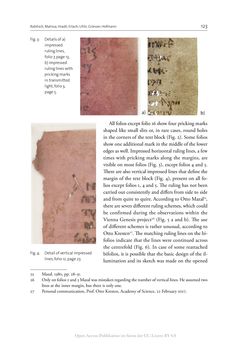 Rabitsch, Malissa, Hradil, Erlach, Uhlir, Griesser, Hofmann
123
Fig. 3 Details of a)
impressed
ruling lines,
folio 7 page 13,
b) impressed
ruling lines with
pricking marks
in transmitted
light, folio 3,
page 5
a)
b)
All folios except folio 16 show four pricking marks
shaped like small slits or, in rare cases, round holes
in the corners of the text block (Fig. 3). Some folios
show one additional mark in the middle of the lower
edges as well. Impressed horizontal ruling lines, a few
times with pricking marks along the margins, are
visible on most folios (Fig. 3), except folios 4 and 5.
There are also vertical impressed lines that define the
margin of the text block (Fig. 4), present on all fo-
lios except folios 1, 4 and 5. The ruling has not been
carried out consistently and differs from side to side
and from quire to quire. According to Otto Mazal
there are seven different ruling schemes, which could
be confirmed during the observations within the
Vienna Genesis project (Fig. 3 a and b). The use
of different schemes is rather unusual, according to
Otto Kresten. The matching ruling lines on the bi-
folios indicate that the lines were continued across
the centrefold (Fig. 6). In case of some reattached
bifolios, it is possible that the basic design of the il-
lumination and its sketch was made on the opened
Fig. 4 Detail of vertical impressed
lines folio 12 page 23
25 Mazal, 1980, pp. 28–31.
26 Only on folios 2 and 3 Mazal was mistaken regarding the number of vertical lines. He assumed two
lines at the inner margin, but there is only one.
27 Personal communication, Prof. Otto Kresten, Academy of Science, 22 February 2017.
Open Access Publikation im Sinne der CC-Lizenz BY 4.0